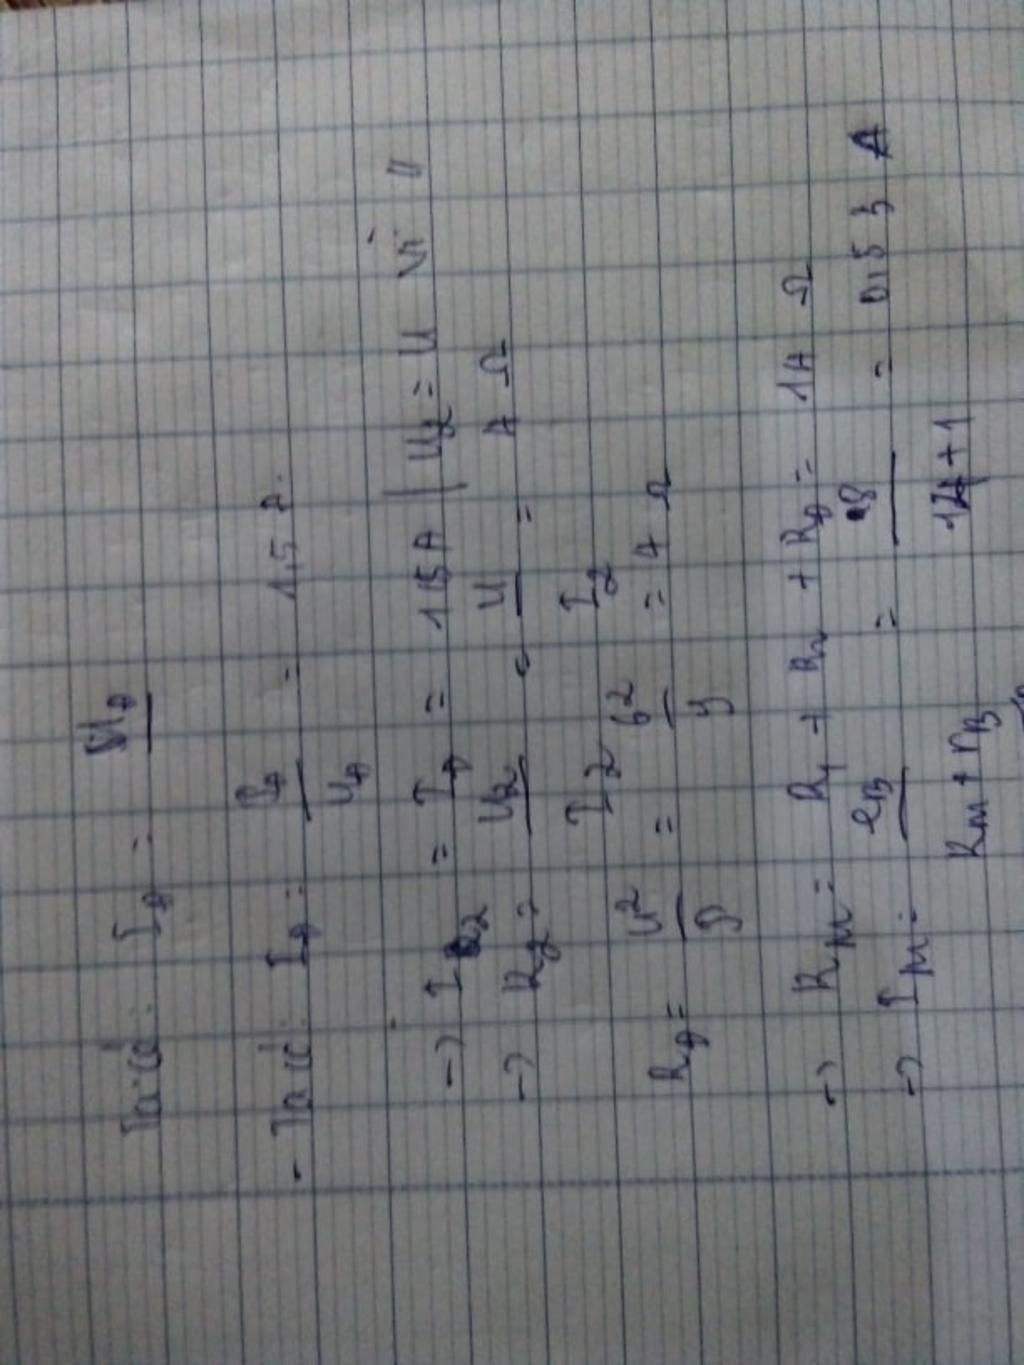 Ta có: I_Đ =
- Ta có: I_Đ = P_Đ / U_Đ = 1,5 A.
→ I_2 = I_Đ = 1,5 A | U_2 = U vì //
→ R_2 = U_2 / I_2 = U / I_2 = 4 Ω
R_Đ = U² / P = 6² / 9 = 4 Ω
→ R_M = R_1 + R_2 + R_Đ = 14 Ω
→ I_M = e_B / (R_M + r_B) = 8 / (14 + 1) = 0,53 A